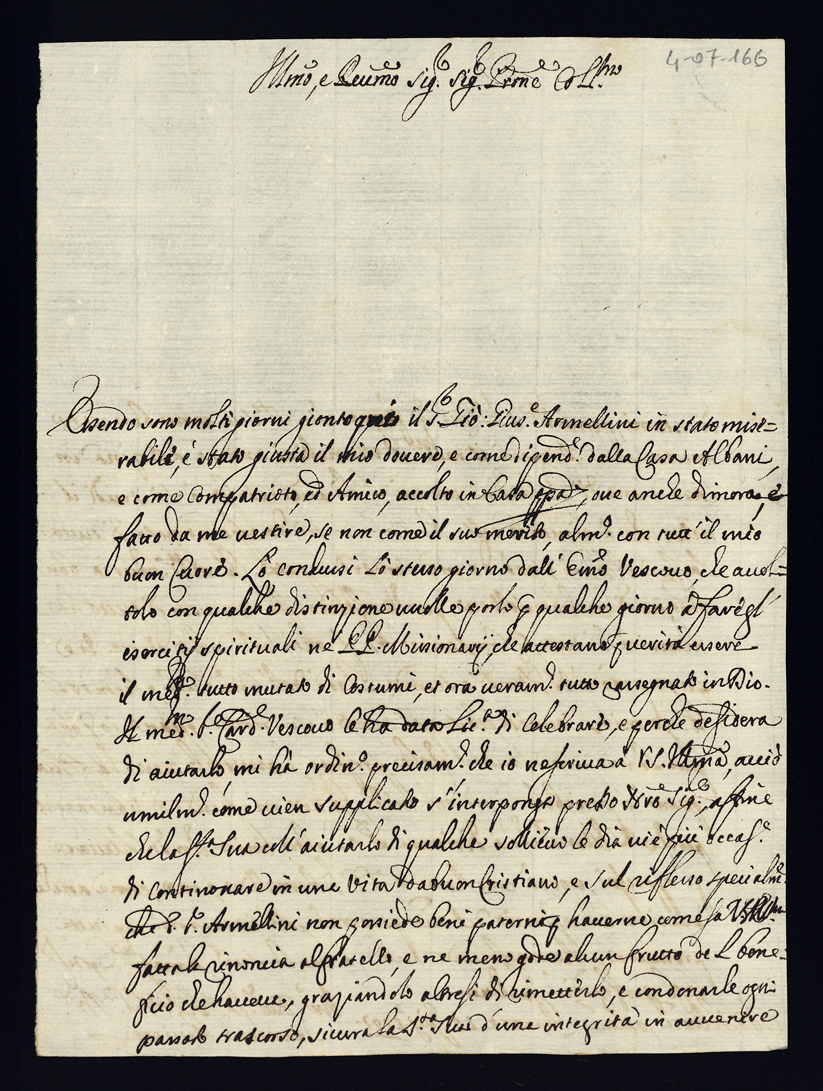 4-07-166
Illmo, e Reumo Sig.r Sig.r Prone Col.mo
Essendo sono molti giorni gionto quà il S.r Gio: Gius.e Armellini in stato mise=
rabile, è stato giusta il mio douere, e come dipend.e dalla Casa Albani,
e come Compatrioto, ed Amico, accolto in Casa ppa, oue anche dimora, e
fatto da me uestire, se non come il suo merito, alm.o con tutt' il mio
buon Cuore. Lo condussi lo stesso giorno dall' Emo Vescouo, che accol=
tolo con qualche distinzione uuolle porlo p qualche giorno à fare gl'
esercitij spirituali ne PP. Missionarij, che attestano p uerità essere
il med.o tutto mutato di Costumi, et ora ueram.e tutto rassegnato in Dio.
Il med.mo S.r Card.e Vescouo le ha data Lic.a di Celebrare, e perche desidera
di aiutarlo, mi hà ordin.o precisam.e che io ne scriua a V.S. Illma, acciò
umilm.e come uien supplicato s'interponga presso Nro Sig.re, affine
che la S.tà Sua coll' aiutarlo di qualche sollieuo le dia uie più occas.e
di continouare in una Vita da buon Cristiano, e sul riflesso specialm.e
che d.o S.r Armellini non possiede beni paterni p hauerne come sà V.S. Illma
fatta le rinoncia al fratello, e ne meno gode alcun frutto del bene=
ficio che haueua, graziandolo altresi di rimetterlo, e condonarle ogni
passato trascorso, sicura la S.tà Sua d'une integrità in auuenire